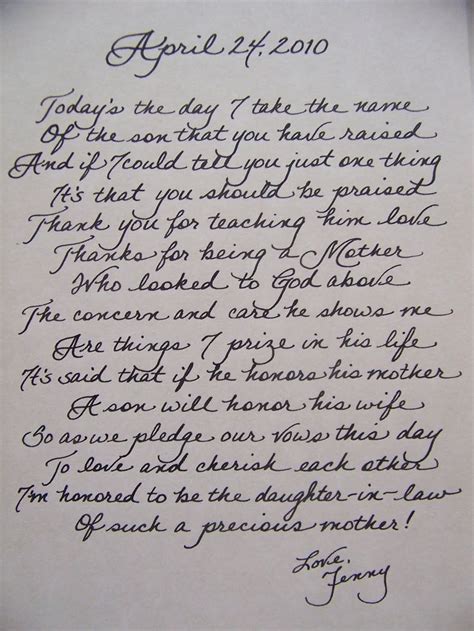 April 24, 2010
Today's the day I take the name
Of the son that you have raised
And if I could tell you just one thing
It's that you should be praised
Thank you for teaching him love
Thanks for being a Mother
Who looked to God above
The concern and care he shows me
Are things I prize in his life
It's said that if he honors his mother
A son will honor his wife
So as we pledge our vows this day
To love and cherish each other
I'm honored to be the daughter-in-law
Of such a precious mother!
Love,
Jenny